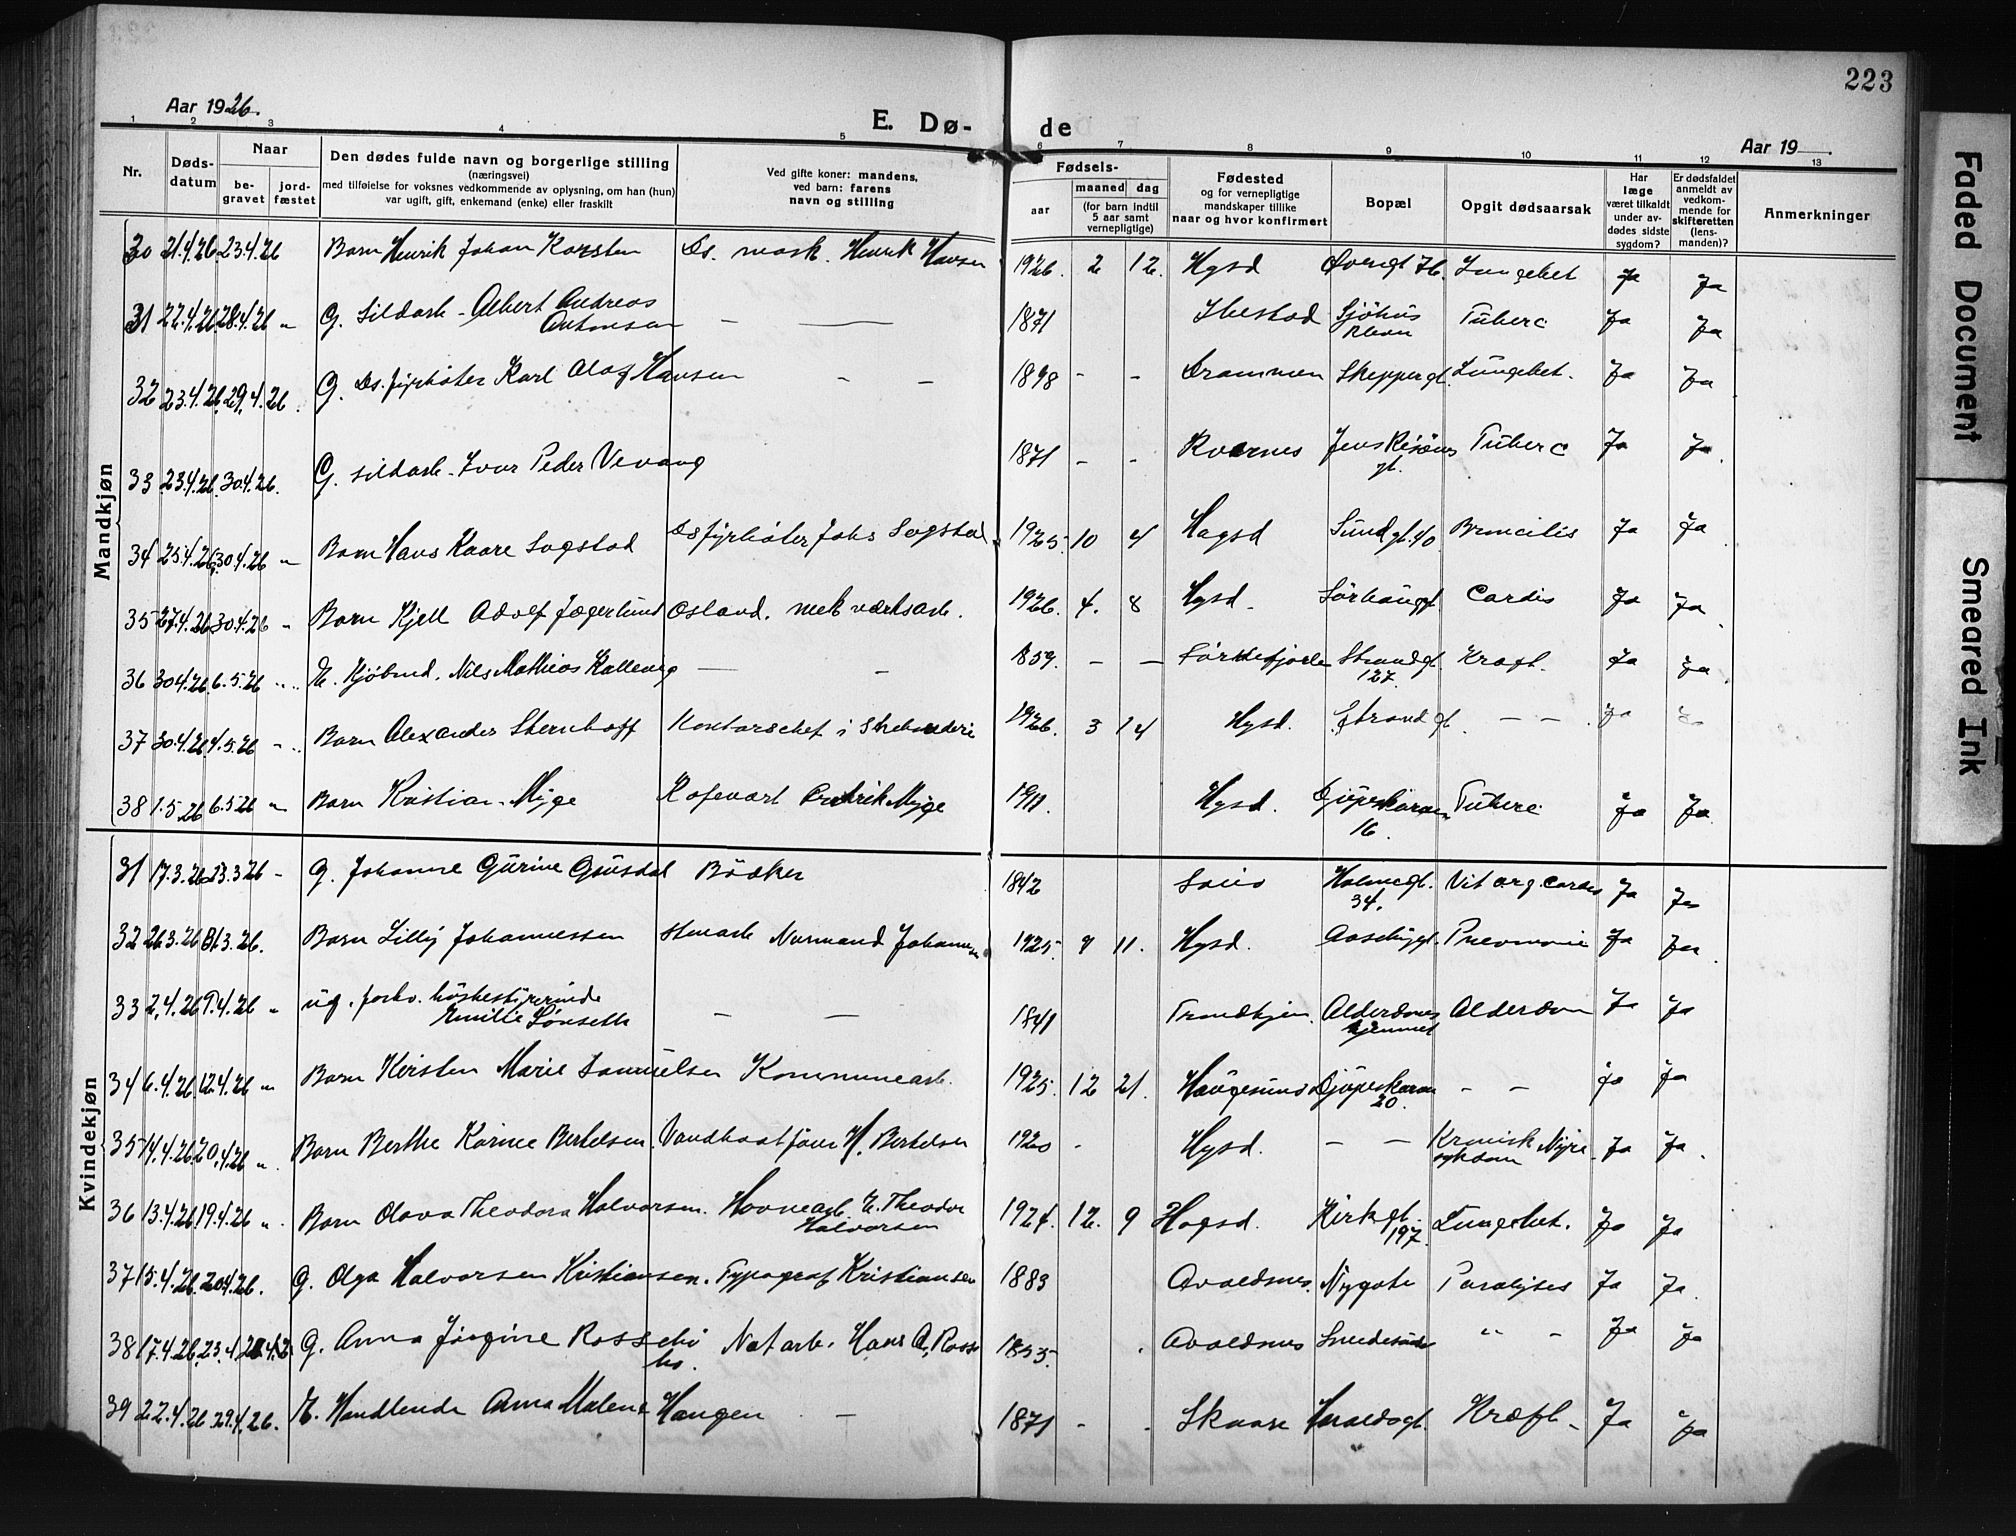 223
Aar 1926.
E. Dø-
de
Aar 19
1 2 3 4 5 6 7 8 9 10 11 12 13
Nr.
Døds-
datum
Naar
be-
gravet
jord-
fæstet
Den dødes fulde navn og borgerlige stilling
(næringsvei)
med tilføielse for voksnes vedkommende av oplysning, om han (hun)
var ugift, gift, enkemand (enke) eller fraskilt
Ved gifte koner: mandens,
ved barn: farens
navn og stilling
Fødsels-
aar
maaned dag
(for barn indtil
5 aar samt
vernepligtige)
Fødested
og for vernepligtige
mandskaper tillike
naar og hvor konfirmert
Bopæl
Opgit dødsaarsak
Har
læge
været tilkaldt
under av-
dødes sidste
sygdom?
Er dødsfaldet
anmeldt av
vedkom-
mende for
skifteretten
(lens-
manden)?
Anmerkninger
Mandkjøn
30 21.4.26 23.4.26 Barn Henrik Johan Karsten Ds. mask. Henrik Hansen 1926. 2 12. Hgsd Øvregt Lungebet Ja Ja
31 22.4.26 28.4.26 " G. Sildarb. Albert Andreas
Antonsen — — 1871 Ibestad Sjøhus Tuberc Ja Ja
32 23.4.26 29.4.26. G. Ds. fyrbøter Karl Olaf Hansen - - 1898 - - Drammen Skeppergt. Lungebet. Ja Ja
33 23.4.26. 30.4.26. G. sildarb. Ivar Peder Vevang 1871 - - Kvernes Jens Risøens
gt. Tuberc Ja Ja.
34 25.4.26 30.4.26 " Barn Hans Kaare Sogstad Ds fyrbøter Johs Sogstad 1925. 10 4 Hagsd Sundgt. 40 Broncitis Ja Ja
35 27.4.26 30.4.26 " Barn Kjell Adolf Jægerlund Osland. mek værksarb. 1926. 4. 8 Hgsd. Sørhauggt Cardis Ja Ja
36 30.4.26. 6.5.26 " E. Kjøbmd. Nils Mathias Kallevig — - 1859. - - Strandgt
127. Kræft. Ja Ja
37 30.4.26 4.5.26 " Barn Alexander Sternhoff Kontorschef i 1926. 3 14 Hgsd. Strandgt. - - Ja Ja
38 1.5.26 6.5.26 " Barn Kristian Myge Kafevært Fredrik Myge 1911. Hgsd. Djupaskaren
16. Tuberc Ja Ja.
Kvindekjøn
31 17.3.26 23.3.26 - G. Johanne Gurine Gjusdal Bødker 1842 Holmegt.
34. Vit org. cordis Ja Ja
32 26.3.26 31.3.26. Barn Lilly Johannessen stenarb Normand Johannessen 1925. 9 11. Hgsd. Aasebygt. Pneomonie Ja Ja
33 2.4.26 9.4.26 " ug. forhv. husbestyrerinde
Emilie Sønseth - - 1841 Trondhjem. Alderdoms
hjemmet Alderdom Ja Ja
34 6.4.26. 12.4.26 " Barn Kirsten Marie Samuelsen Kommunearb. 1925. 12 21. Haugesund Djupaskaren
20. - - Ja Ja
35 14.4.26. 20.4.26 " Barn Berthe Karine Bertelsen. Vandbaatfører H. Bertelsen 1920 - Hgsd. - - Kronisk Nyre
sykdom Ja Ja.
36 13.4.26 19.4.26 ". Barn Olava Theodora Halvorsen. Havnearb. E. Theodor
Halvorsen 1924. 12. 9 Hagsd. Kirkgt.
197. Lungebet. Ja Ja
37 15.4.26. 20.4.26. G. Olga Halvorsen Kristiansen. Typograf Kristiansen 1883 Avaldsnes. Nygate Paralyses Ja Ja.
38 17.4.26. 23.4.26 G. Anna Jørgine Rossebø Natarb. Hans A. Rosse-
bø. 1853. Avaldsnes Smedesund " - Ja Ja
39 22.4.26 29.4.26. E. Handlende Anna Malene Haugen - 1871 - - Skaare Haraldsgt. Kræft - Ja Ja
Faded Document
Smeared Ink